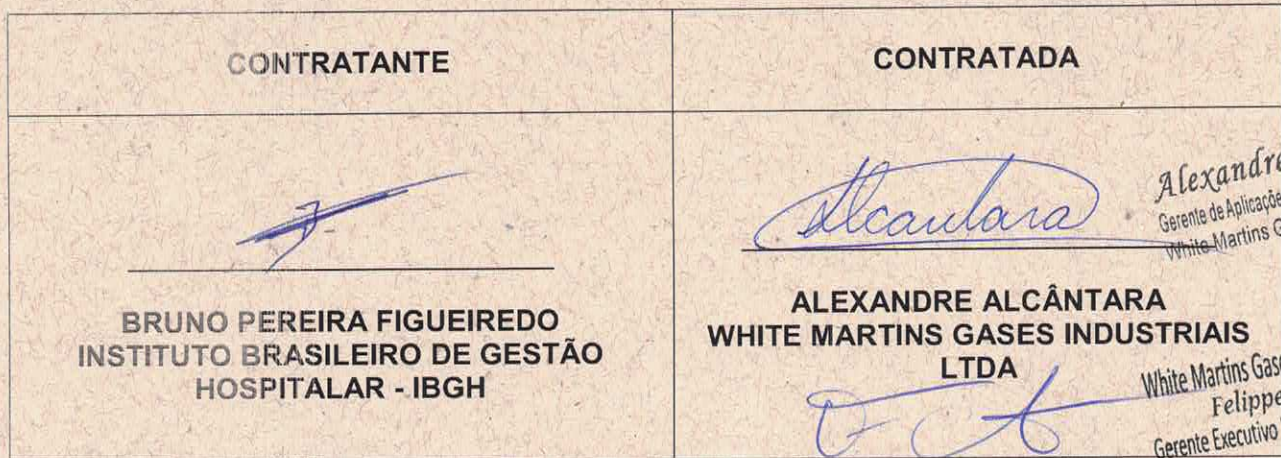 CONTRATANTE
CONTRATADA
BRUNO PEREIRA FIGUEIREDO
INSTITUTO BRASILEIRO DE GESTÃO
HOSPITALAR - IBGH
Alcantara
Alexandre
Gerente de Aplicaçõe
White Martins G
ALEXANDRE ALCÂNTARA
WHITE MARTINS GASES INDUSTRIAIS
LTDA
White Martins Gase
Felippe
Gerente Executivo